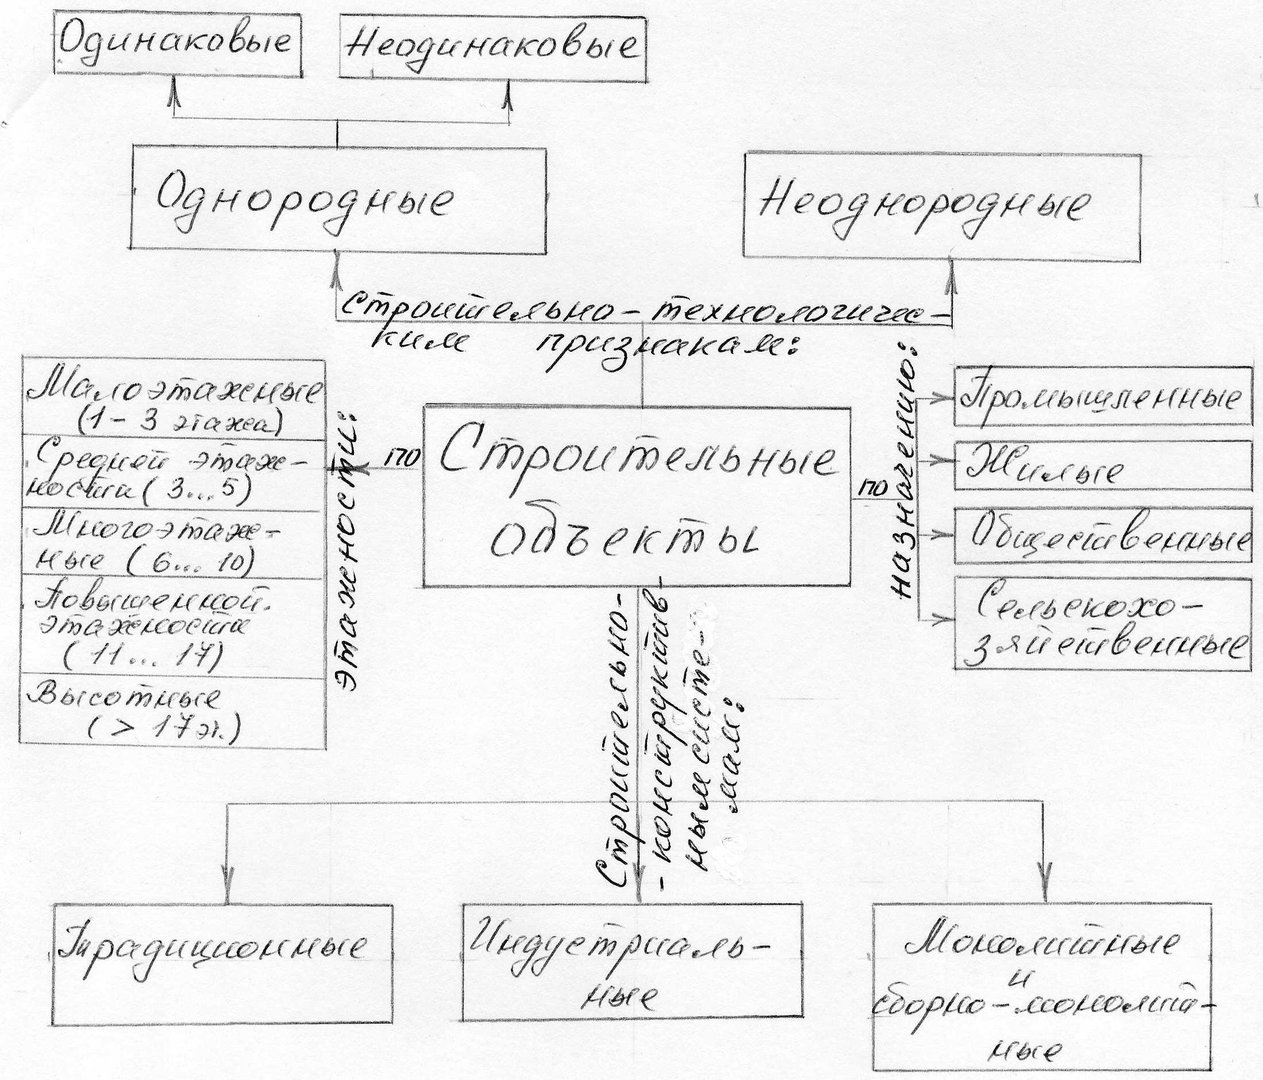 Одинаковые
Неодинаковые
Однородные
Неоднородные
Строительно-технологичес-
ким признакам:
Малоэтажные
(1-3 этажа)
Средней этаж-
ности (3...5)
Многоэтаж-
ные (6...10)
Повышенной
этажности
(11...17)
Высотные
(> 17 эт.)
по
этажности:
Строительные
объекты
по
назначению:
Промышленные
Жилые
Общественные
Сельскохо-
зяйственные
Строительно-
-конструктив-
ным систе-
мам:
Традиционные
Индустриаль-
ные
Монолитные
и
сборно-монолит-
ные